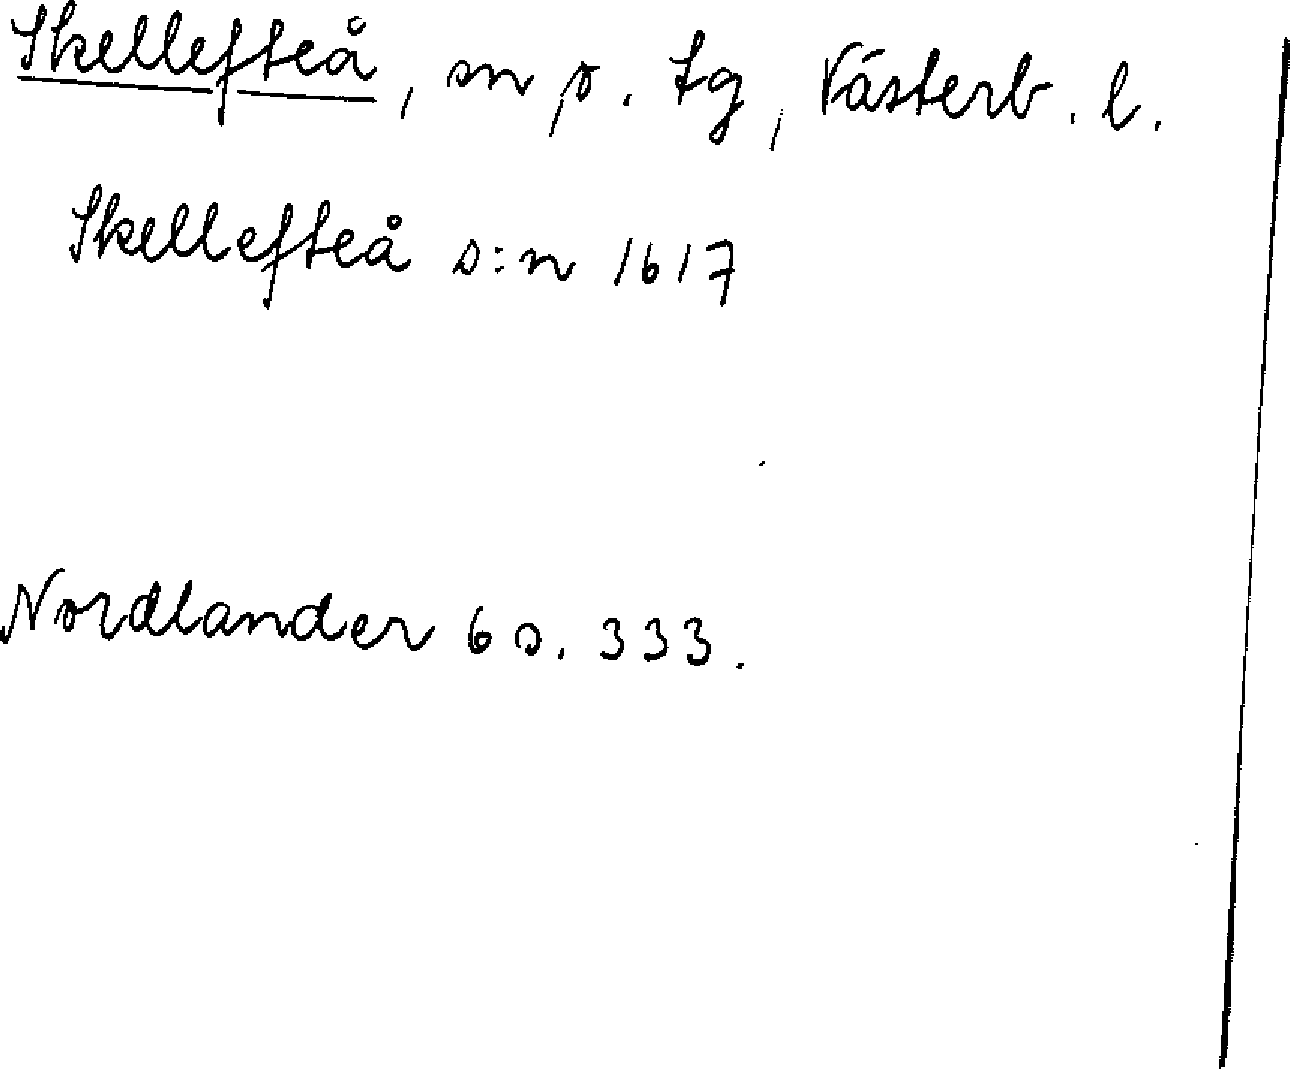 Skellefteå, sn o. tg, Västerb. l.
Skellefteå s:n 1617
Nordlander 6 s. 333.